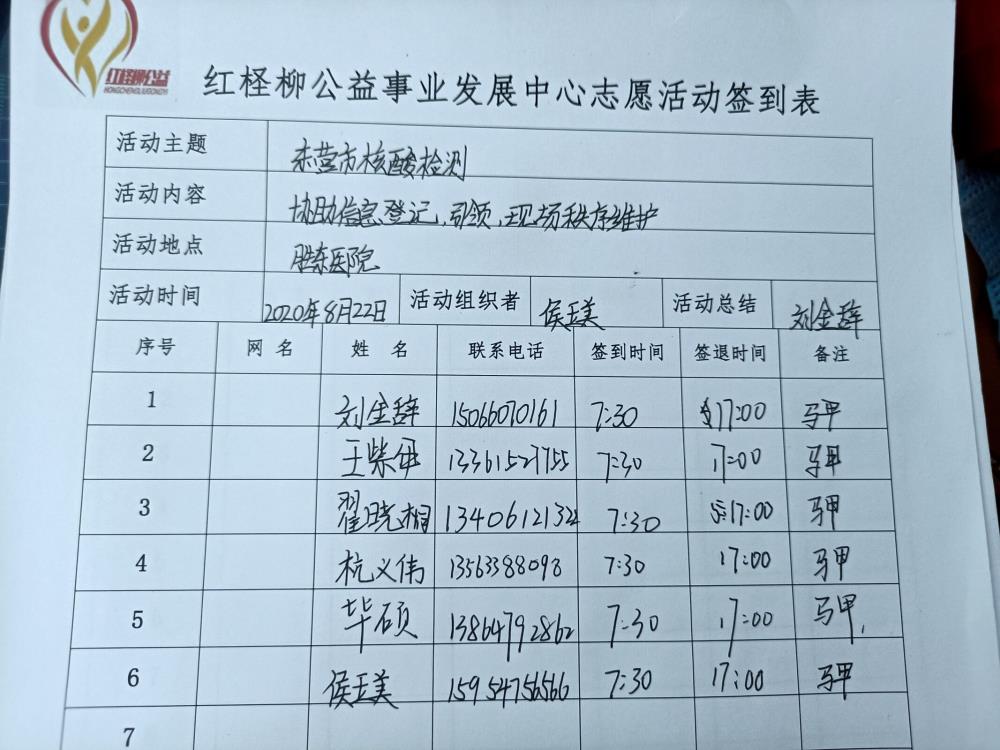 红柽柳公益
HONGCHENGLIUGONGYI
红柽柳公益事业发展中心志愿活动签到表
活动主题 东营市核酸检测
活动内容 协助信息登记,引领,现场秩序维护
活动地点 胜东医院
活动时间 2020年8月22日 活动组织者 侯玉美 活动总结 刘金辞
序号 网 名 姓 名 联系电话 签到时间 签退时间 备注
1 刘金辞 15066070161 7:30 17:00 马甲
2 王柴伊 13361527755 7:30 17:00 马甲
3 翟晓桐 13406121322 7:30 17:00 马甲
4 杭义伟 13563388098 7:30 17:00 马甲
5 毕硕 13864792862 7:30 17:00 马甲
6 侯玉美 15954756566 7:30 17:00 马甲
7